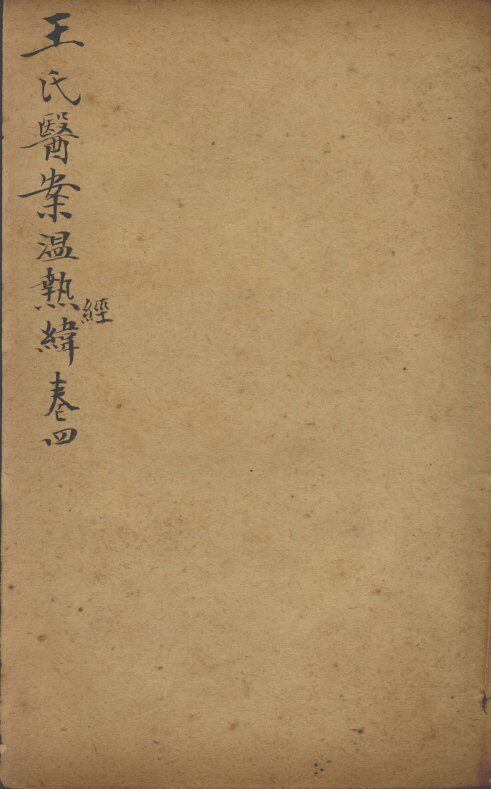 王氏醫案温熱經緯卷四